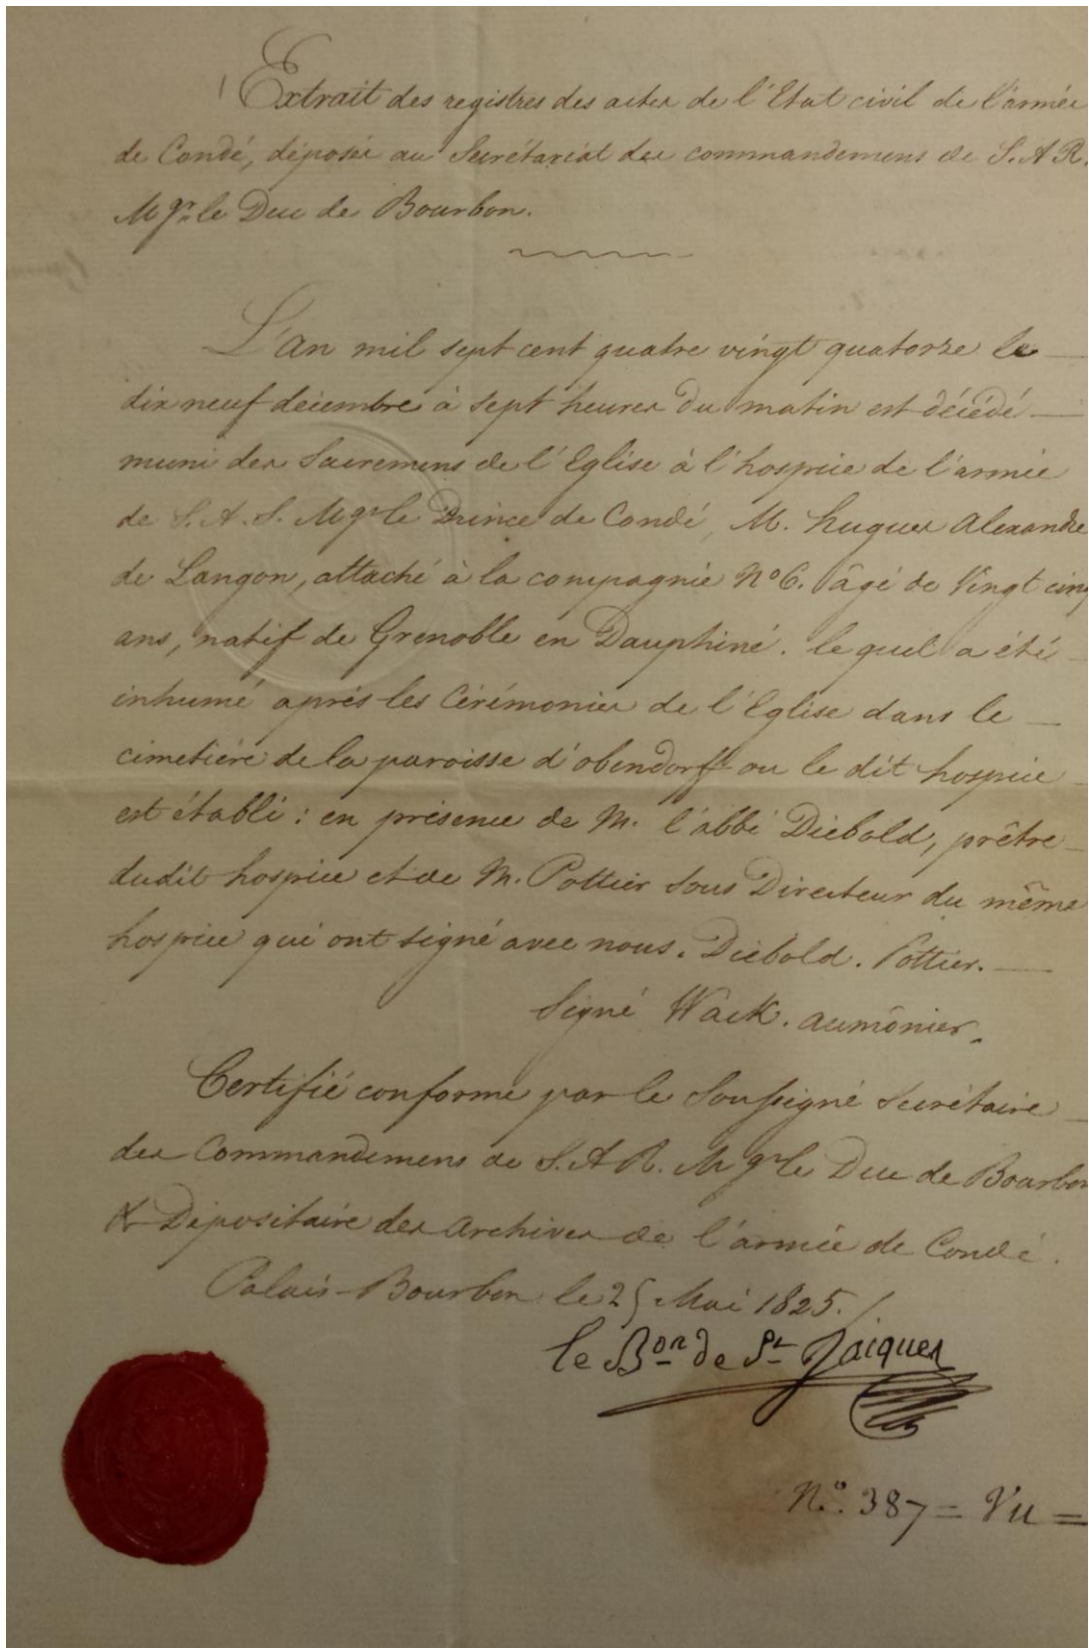 Extrait des registres des actes de l'Etat civil de l'armée
de Condé, déposés au Secrétariat des commandemens de S. A. R.
Mgr. le Duc de Bourbon.
L'an mil sept cent quatre vingt quatorze le
dix neuf décembre à sept heures du matin est décédé
muni des Sacremens de l'Eglise à l'hospice de l'armée
de S. A. S. Mgr le Prince de Condé, M. hugues Alexandre
de Langon, attaché à la compagnie N° 6. âgé de Vingt cinq
ans, natif de Grenoble en Dauphiné. lequel a été
inhumé après les Cérémonies de l'Eglise dans le
cimetière de la paroisse d'obendorff ou le dit hospice
est établi : en présence de M. l'abbé Diebold, prêtre
dudit hospice et de M. Pottier Sous Directeur du même
hospice qui ont signé avec nous. Diebold. Pottier.
Signé Wack. aumônier.
Certifié conforme par le Soussigné Secrétaire
des Commandemens de S. A. R. Mgr le Duc de Bourbon
& Dépositaire des Archives de l'armée de Condé.
Palais-Bourbon le 25 Mai 1825.
le Bon de St Jacques
N.° 387 = Vu =